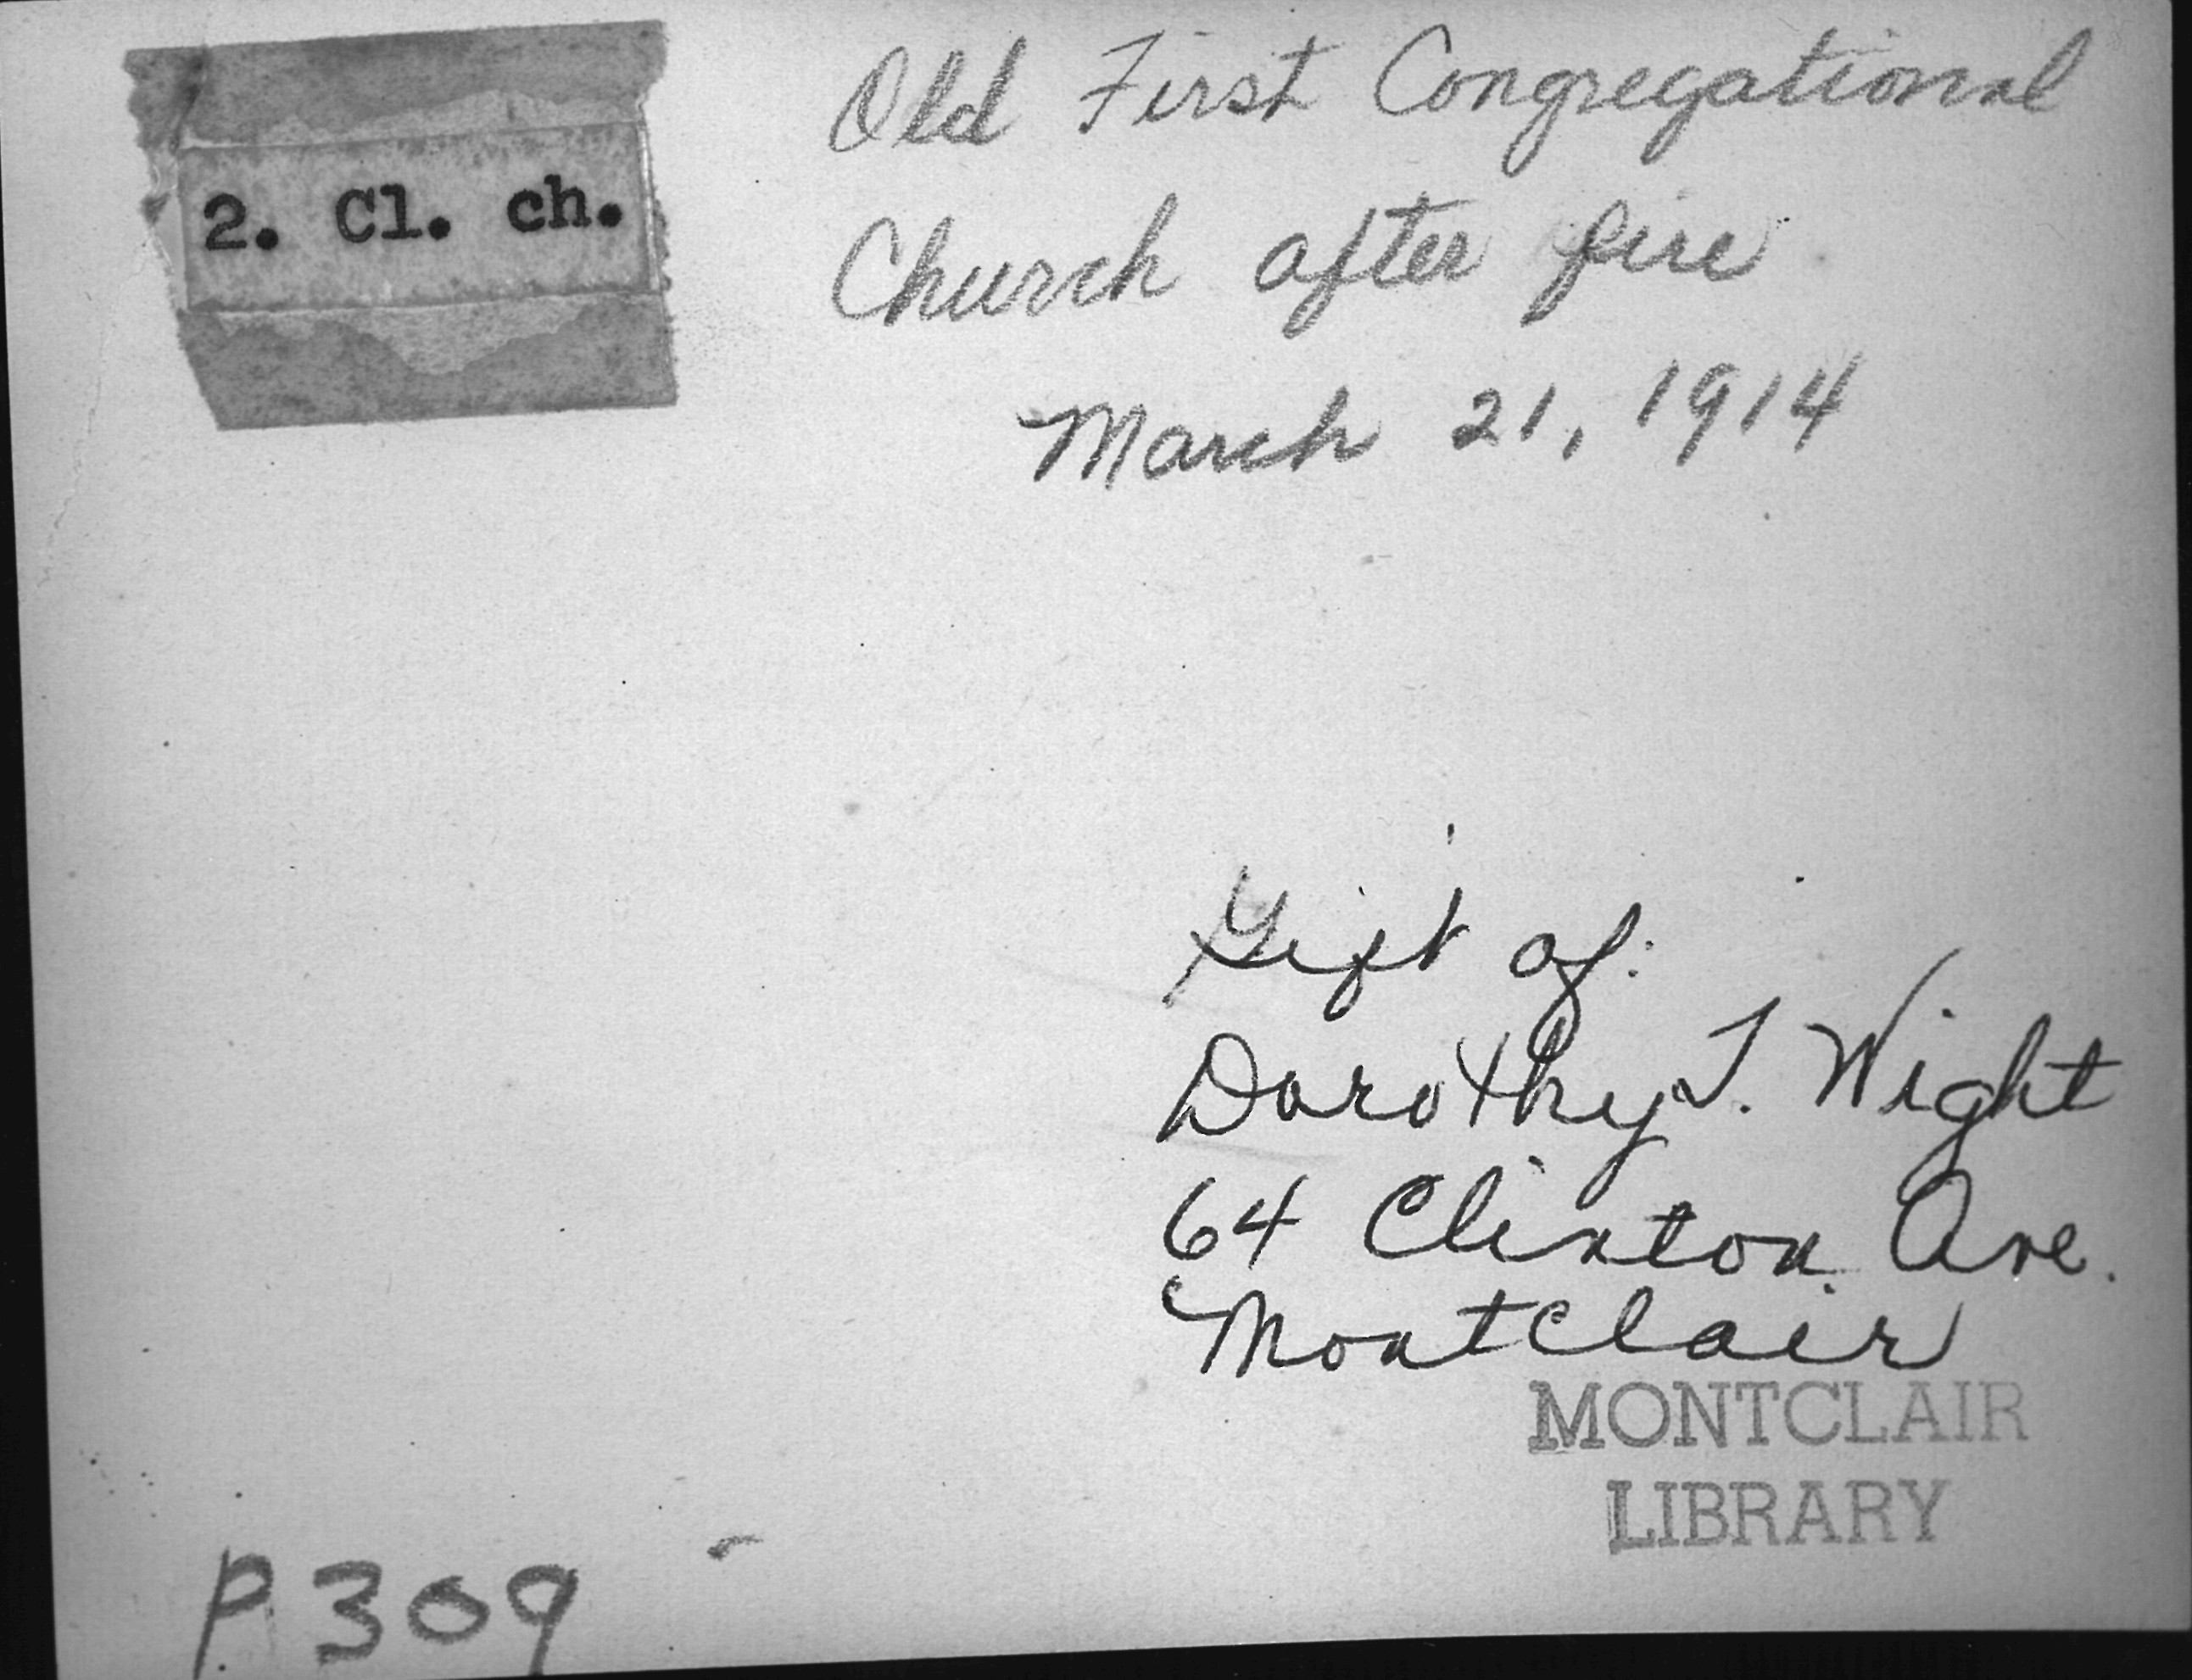 2. Cl. ch.
Old First Congregational
Church after fire
March 21, 1914
Gift of:
Dorothy T. Wight
64 Clinton Ave.
Montclair
MONTCLAIR
LIBRARY
P309